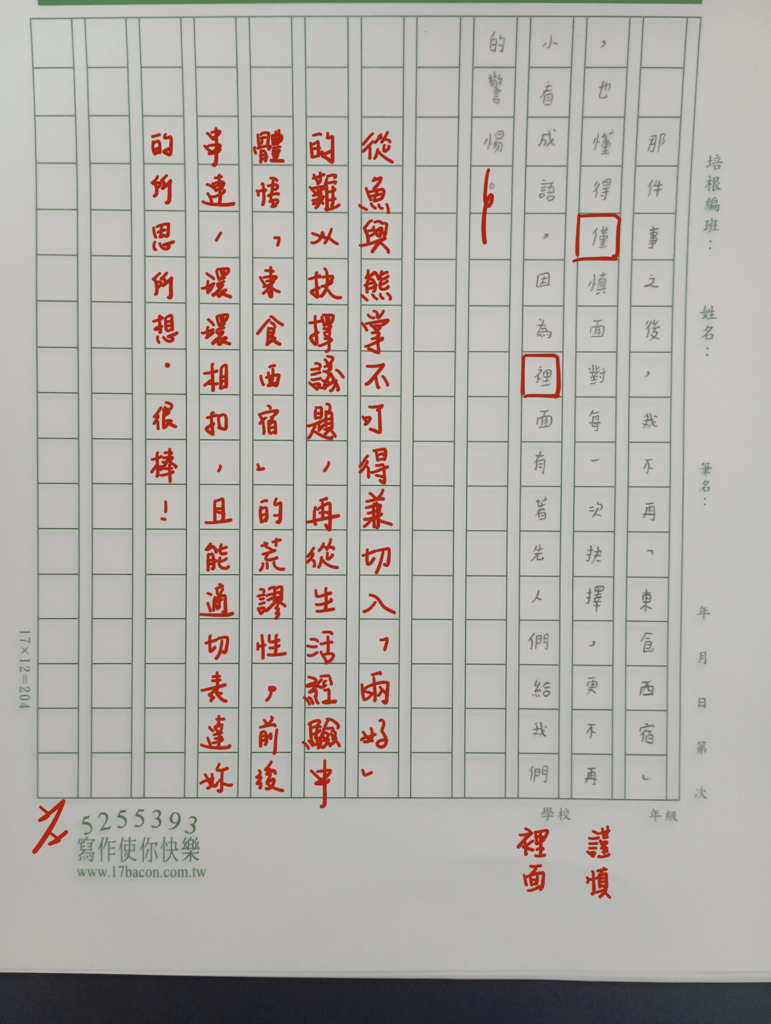 培根編班： 姓名： 筆名： 年 月 日 第 次
那件事之後，我不再「東食西宿」
，也懂得僅慎面對每一次抉擇，更不再
小看成語。因為裡面有著先人們給我們
的警惕。
從魚與熊掌不可得兼切入「兩好」
的難以抉擇議題，再從生活經驗中
體悟「東食西宿」的荒謬性，前後
串連，環環相扣，且能適切表達妳
的所思所想．很棒！
謹慎
裡面
年級
學校
5255393
寫作使你快樂
www.17bacon.com.tw
17×12=204